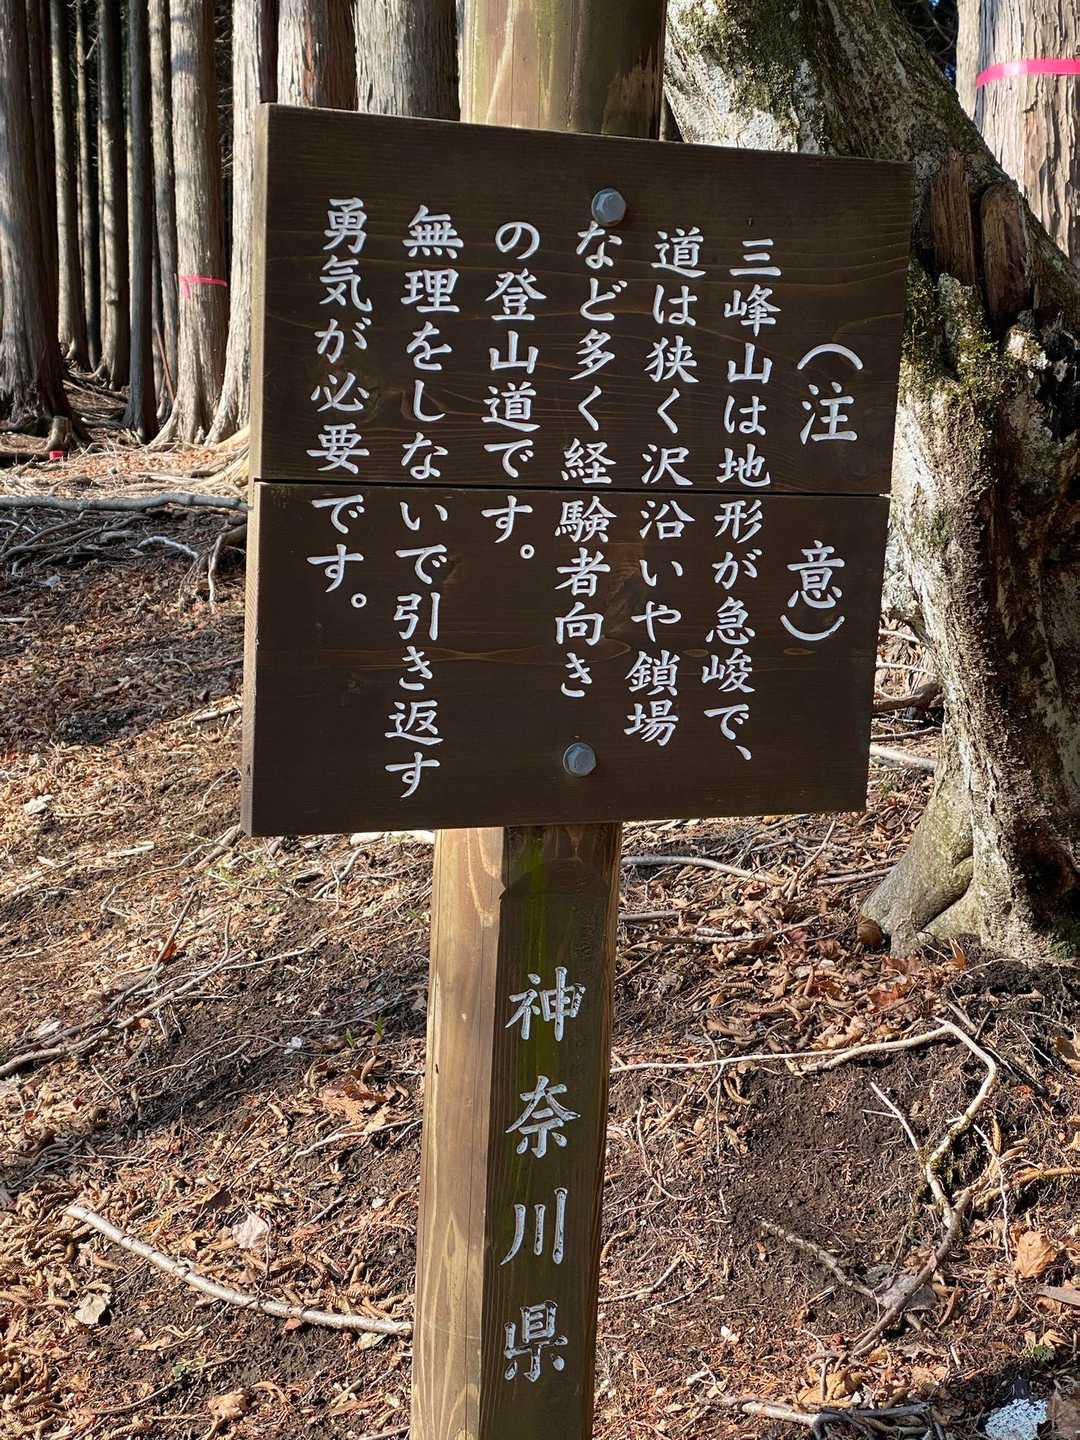 （注　意）
三峰山は地形が急峻で、
道は狭く沢沿いや鎖場
など多く経験者向き
の登山道です。
無理をしないで引き返す
勇気が必要です。
神奈川県